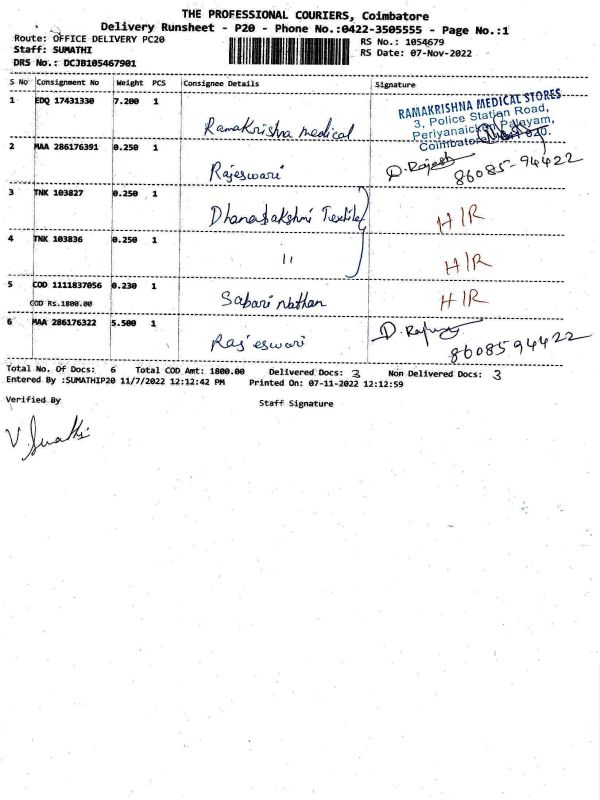 THE PROFESSIONAL COURIERS, Coimbatore
Delivery Runsheet - P20 - Phone No.:0422-3505555 - Page No.:1
Route: OFFICE DELIVERY PC20 RS No.: 1054679
Staff: SUMATHI RS Date: 07-Nov-2022
DRS No.: DCJB105467901
S No Consignment No Weight PCS Consignee Details Signature
1 EDQ 17431330 7.200 1 Ramakrishna medical
RAMAKRISHNA MEDICAL STORES
3, Police Station Road,
Periyanaicken Palayam,
2 MAA 286176391 0.250 1 Rajeswari D. Rajesh 86085-94422
3 TNK 103827 0.250 1 Dhanalakshmi Textiles H/R
4 TNK 103836 0.250 1 " H/R
5 COD 1111837056 0.230 1 Sabari nathan H/R
COD Rs.1800.00
6 MAA 286176322 5.500 1 Rajeswari 8608594422
Total No. Of Docs: 6 Total COD Amt: 1800.00 Delivered Docs: 3 Non Delivered Docs: 3
Entered By :SUMATHIP20 11/7/2022 12:12:42 PM Printed On: 07-11-2022 12:12:59
Verified By Staff Signature